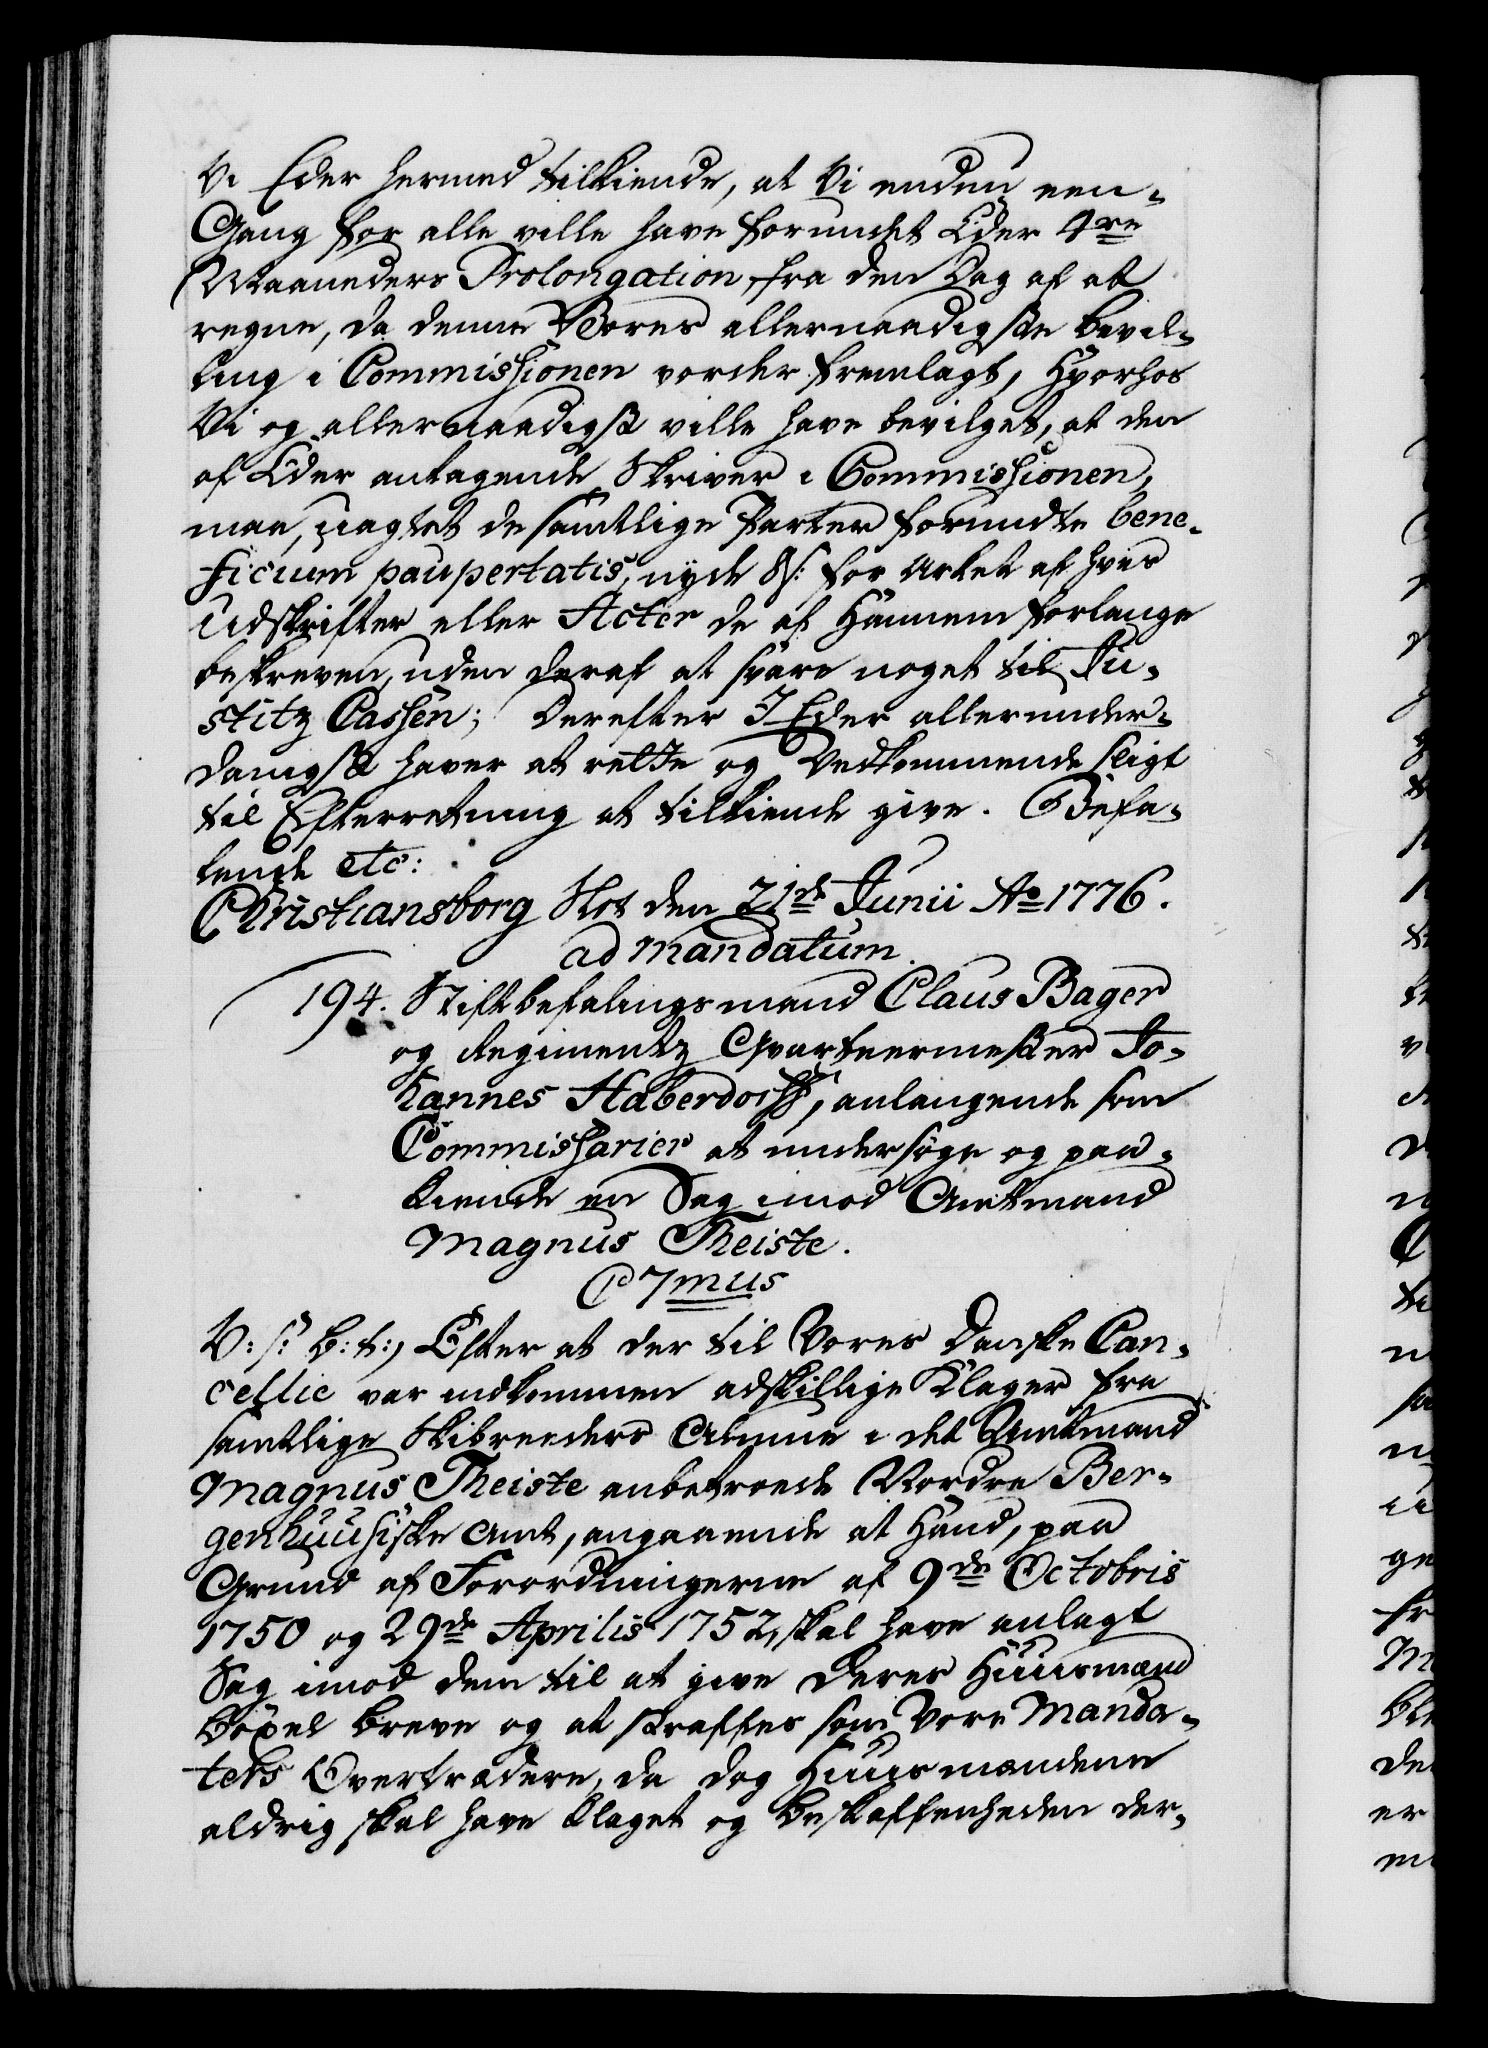 Vi Eder hermed tilkiende, at Vi endnu een-
Gang for alle ville have forundet Eder 4re
Maaneders Prolongation, fra den Dag af at
regne, da denne Vores allernaadigste Bevil-
ling i Commissionen vorder fremlagt, Hvorhos
Vi og allernaadigst ville have bevilget, at den
af Eder antagende Skriver i Commissionen,
maa, uagtet de samtlige Parter forundte bene-
ficium paupertatis, nyde 8 s: for Arket af hvis
Udskrifter eller Acter de af Hannem forlange
beskreven, uden deraf at svare noget til Ju-
stitz Cassen; Derefter I Eder allerunder-
danigst haver at rette og Vedkommende sligt
til Efterretning at tilkiende give. Befa-
lende etc:
Christiansborg Slot den 21de Junii Ao 1776.
ad mandatum.
194. Stiftbefalingsmand Claus Bager
og Regimentz Qvarteermester Jo-
hannes Haberdorff, anlangende som
Commissarier at undersøge og paa-
kiende en Sag imod Amtmand
Magnus Theiste.
C 7mus
V: s: b: t:, Efter at der til Vores Danske Can-
cellie var indkommen adskillige Klager fra
samtlige Skibreeders Almue i det Amtmand
Magnus Theiste anbetroede Nordre Ber-
genhuusiske Amt, angaaende at Hand, paa
Grund af Forordningerne af 9de Octobris
1750 og 29de Aprilis 1752, skal have anlagt
Sag imod dem til at give deres Huusmænd
Bøxel Breve og at straffes som Vore Manda-
ters Overtrædere, da dog Huusmændene
aldrig skal have klaget og Beskaffenheden der-